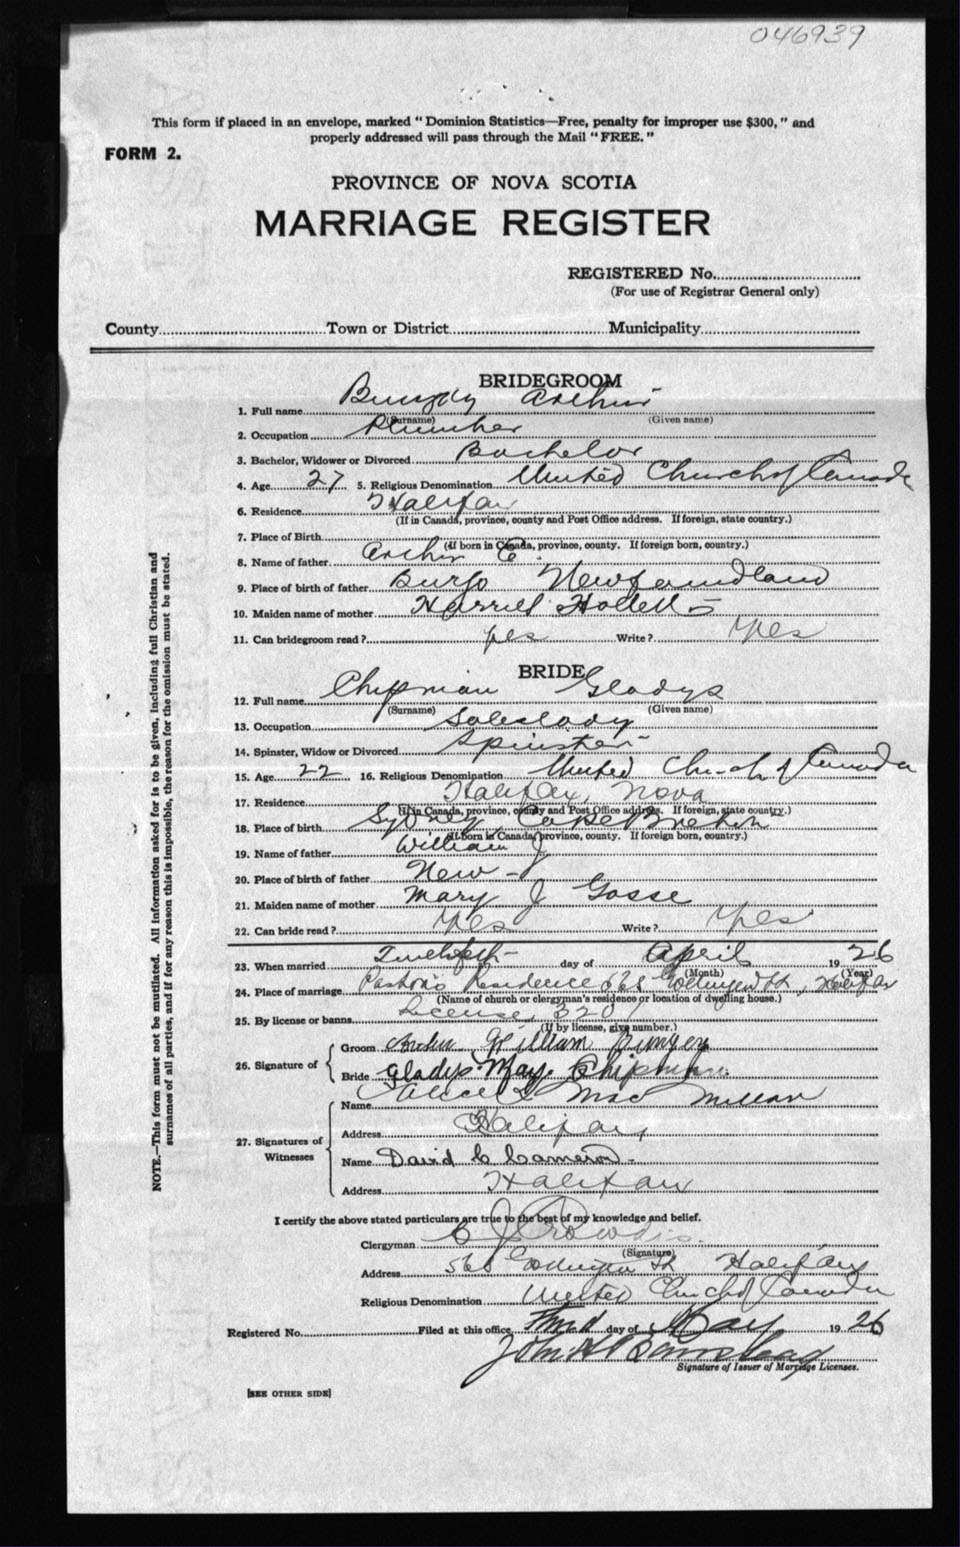 046939
This form if placed in an envelope, marked "Dominion Statistics—Free, penalty for improper use $300," and
properly addressed will pass through the Mail "FREE."
FORM 2.
PROVINCE OF NOVA SCOTIA
MARRIAGE REGISTER
REGISTERED No.
(For use of Registrar General only)
County Town or District Municipality
BRIDEGROOM
1. Full name Arthur
(Surname) (Given name)
2. Occupation Plumber
3. Bachelor, Widower or Divorced Bachelor
4. Age 27 5. Religious Denomination United Church of Canada
6. Residence Halifax
(If in Canada, province, county and Post Office address. If foreign, state country.)
7. Place of Birth
(If born in Canada, province, county. If foreign born, country.)
8. Name of father E.
9. Place of birth of father Newfoundland
10. Maiden name of mother Hollett
11. Can bridegroom read? yes Write? Yes
BRIDE
12. Full name Chipman Gladys
(Surname) (Given name)
13. Occupation Saleslady
14. Spinster, Widow or Divorced Spinster
15. Age 22 16. Religious Denomination United Church of Canada
17. Residence Halifax, Nova
(If in Canada, province, county and Post Office address. If foreign, state country.)
18. Place of birth Sydney, Cape Breton
(If born in Canada, province, county. If foreign born, country.)
19. Name of father William J
20. Place of birth of father New
21. Maiden name of mother Mary J Gosse
22. Can bride read? Yes Write? Yes
23. When married day of April 1926
(Month) (Year)
24. Place of marriage Pastor's Residence St, Halifax
(Name of church or clergyman's residence or location of dwelling house.)
25. By license or banns License, 3201
(If by license, give number.)
26. Signature of
Groom William
Bride Gladys May Chipman
27. Signatures of Witnesses
Name MacMillan
Address Halifax
Name David C Cameron
Address Halifax
I certify the above stated particulars are true to the best of my knowledge and belief.
Clergyman C J Crowdis
(Signature)
Address St Halifax
Religious Denomination United Church of Canada
Registered No. Filed at this office Third day of May 1926
John H Barnstead
Signature of Issuer of Marriage Licenses.
[SEE OTHER SIDE]
NOTE.—This form must not be mutilated. All information asked for is to be given, including full Christian and
surnames of all parties, and if for any reason this is impossible, the reason for the omission must be stated.